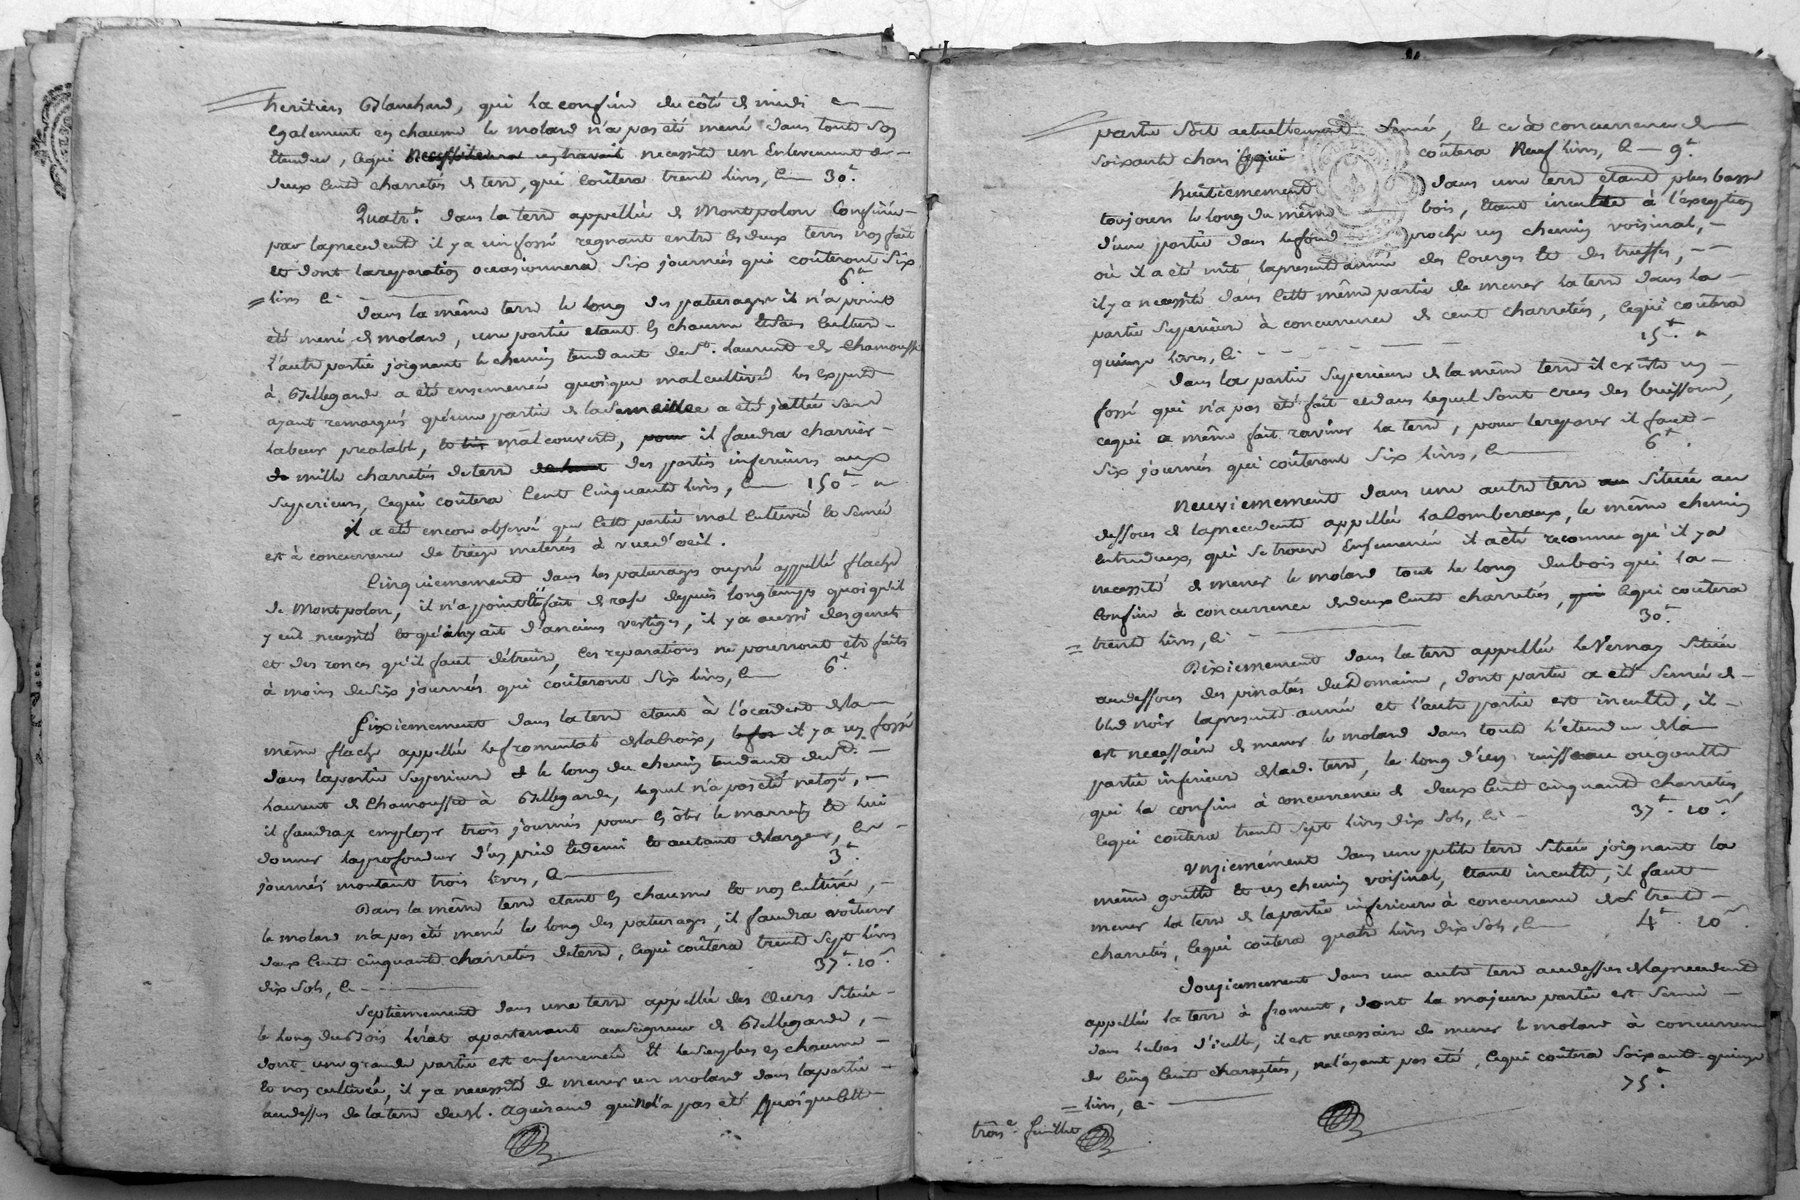 heritiers Blanchard, qui la confine du côté de midi &
également en chaume le molard n'a pas eté mené dans toute son
etendue, cequi necessite un Enlevement de
deux cents charretés de terre, qui coûtera trente livres, Cy 30.
Quatr.t dans la terre appellée de Montpolon Confinée
par la precedente il y a un fossé regnant entre les deux terres non fait
et dont la reparation occasionnera six journées qui coûteront six
livres Cy 6.
dans la même terre le long des paturages il n'a point
eté mené de molard, une partie etant en chaume et sans culture
l'autre partie joignant le chemin tendant de St. Laurent de Chamousset
à Bellegarde a eté ensemencée quoique mal cultivée les experts
ayant remarqués qu'une partie de la semaille a été jettée sans
labour prealable, mal couverte, il faudra charrier
mille charretés de terre des parties inferieures aux
superieures, cequi coûtera Cent Cinquante livres, Cy 150
il a eté encore observé que cette partie mal cultivée et semée
est à concurrence de treize meterés à vue d'oeil.
Cinquiemement dans les paturages ou pré appellé flache
de Montpolon, il n'a point eté fait de rase depuis longtemps quoiqu'il
y eut necessité et qu'il y ait d'anciens vestiges, il y a aussi des genets
et des ronces qu'il faut détruire, les reparations ne pourront etre faites
à moins de six journées qui coûteront six livres, Cy 6.
Sixiemement dans la terre etant à l'occident de la
même flache appellée le fromental de la croix, il y a un fossé
dans la partie superieure & le long du chemin tendant de St.
Laurent de Chamousset à Bellegarde, lequel n'a pas eté netoyé,
il faudra employer trois journées pour en ôter le marrein et lui
donner la profondeur d'un pied et demi et autant de largeur, les
journées montent trois livres, Cy 3.
Dans la même terre etant en chaume et non cultivée,
le molard n'a pas eté mené le long des paturages, il faudra voiturer
deux cents cinquante charretés de terre, cequi coûtera trente sept livres
dix sols, Cy 37. 10
Septiemement dans une terre appellée des Cluers située
le long du Bois Lérat appartenant au seigneur de Bellegarde,
dont une grande partie est ensemencée et le surplus en chaume
et non cultivée, il y a necessité de mener un molard dans la partie
au dessus de la terre de M. Aguiraud qui n'a pas eté quoique cette
partie soit actuellement semée, et ce à concurrence de
soixante chars coûtera neuf livres, Cy 9.
huitiemement dans une terre etant plus basse
toujours le long du même bois, etant inculte à l'exception
d'une partie dans le fond proche un chemin voisinal,
où il a eté mit la presente année des Courges et des truffes,
il y a necessité dans cette même partie de mener la terre dans la
partie superieure à concurrence de cent charretés, cequi coûtera
quinze livres, Cy 15.
dans la partie superieure de la même terre il existe un
fossé qui n'a pas eté fait et dans lequel sont crus des buissons,
cequi a même fait raviner la terre, pour le reparer il faut
six journées qui coûteront six livres, Cy 6.
neuviemement dans une autre terre située au
dessous de la precedente appellée la Lomberaux, le même chemin
entre deux, qui se trouve Ensemencée il a eté reconnu qu'il y a
necessité de mener le molard tout le long du bois qui la
Confine à concurrence de deux cents charretés, cequi coûtera
trente livres, Cy 30.
Dixiemement dans la terre appellée le Vernay située
au dessous des pinatés du Domaine, dont partie a eté semée de
bled noir la presente année et l'autre partie est inculte, il
est necessaire de mener le molard dans toute l'etendue de la
partie inferieure de lad. terre, le long d'un ruisseau ou goutte
qui la confine à concurrence de deux cents cinquante charretés,
cequi coûtera trente sept livres dix sols, Cy 37. 10
Unziemement dans une petite terre située joignant la
même goutte et un chemin voisinal, etant inculte, il faut
mener la terre de la partie inferieure à concurrence de trente
charretés, cequi coûtera quatre livres dix sols, Cy 4. 10
douziemement dans une autre terre au dessus de la precedente
appellée la terre à froment, dont la majeure partie est semée
dans le bas d'icelle, il est necessaire de mener le molard à concurrence
de cinq cents charretés, ne l'ayant pas eté, cequi coûtera soixante quinze
livres, Cy 75.
trois.e feuillet